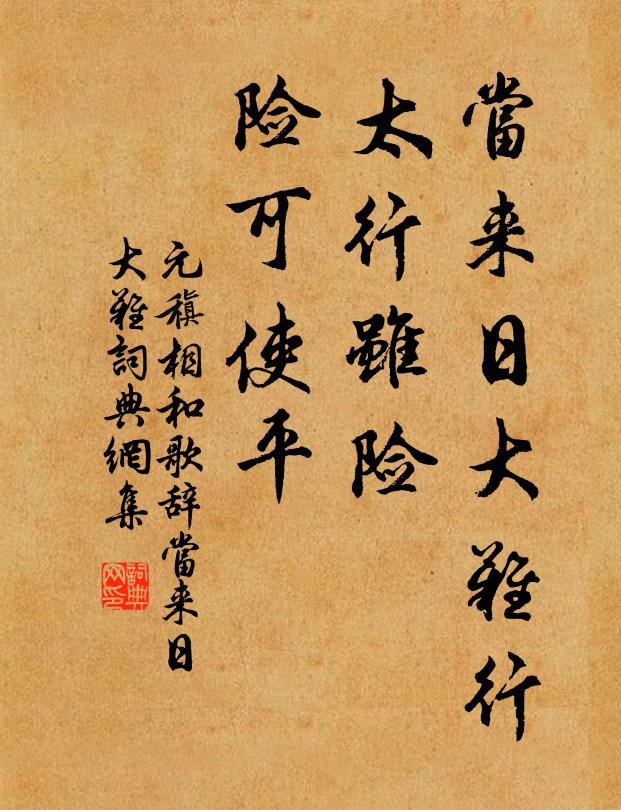 當来日大難行
太行雖险
险可使平
元稹相和歌辞當来日
大難詞典網集
詞典
网印